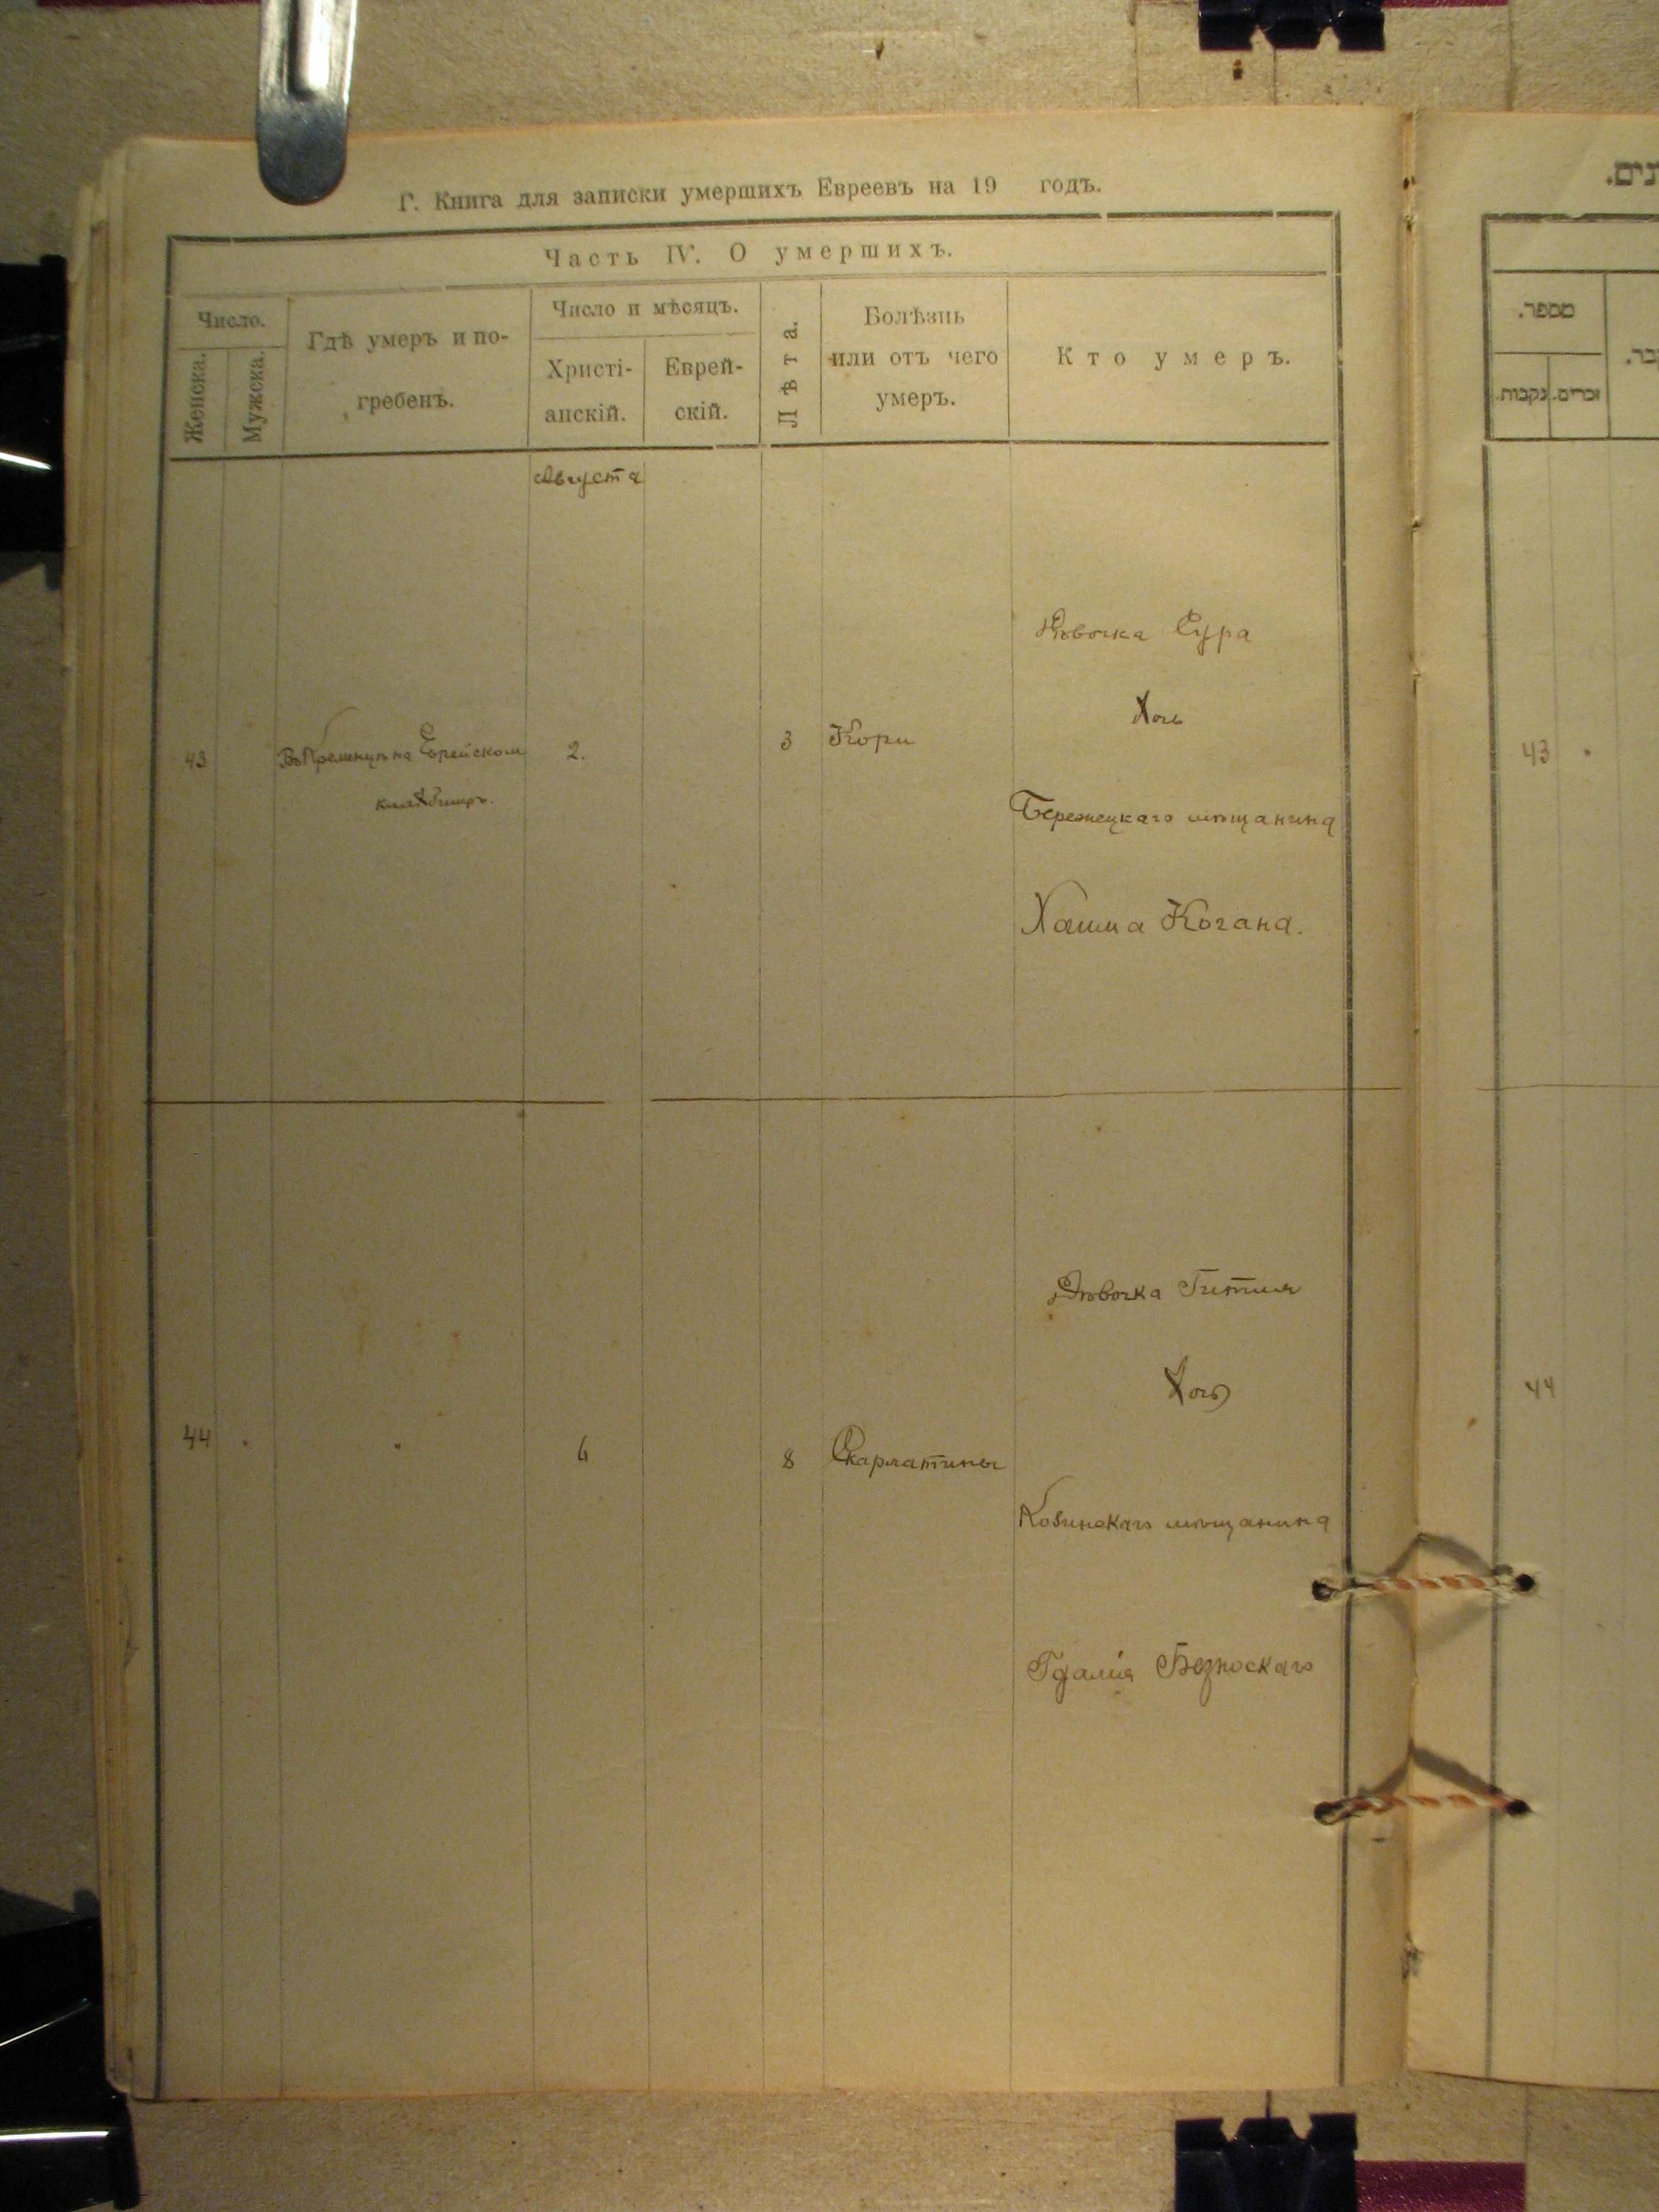 Г. Книга для записки умершихъ Евреевъ на 19 годъ.
Часть IV. О умершихъ.
Число.
Женска.
Мужска.
Гдѣ умеръ и по-
гребенъ.
Число и мѣсяцъ.
Христі-
анскій.
Еврей-
скій.
Лѣта.
Болѣзнь
или отъ чего
умеръ.
Кто умеръ.
Августа
43
Въ Кременцѣ на Еврейском
кладбищѣ.
2.
3
Кори
Дѣвочка Сура
Дочь
Бережецкаго мѣщанина
Хаима Когана.
44
6
8
Скарлатины
Дѣвочка Гитля
Дочь
Козинскаго мѣщанина
Гдалія Безноскаго
מספר.
נקבות.
זכרים.
43
44